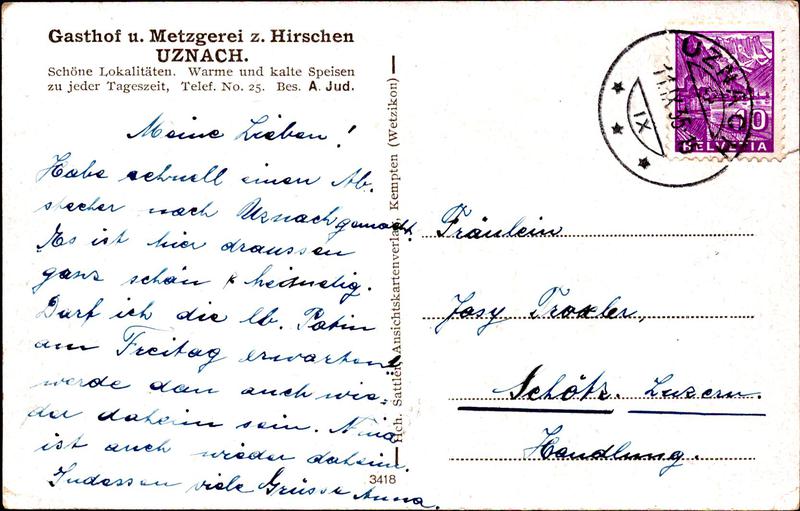 Gasthof u. Metzgerei z. Hirschen
UZNACH.
Schöne Lokalitäten. Warme und kalte Speisen
zu jeder Tageszeit, Telef. No. 25. Bes. A. Jud.
Meine Lieben!
Habe schnell einen Ab-
stecher nach Uznach gemacht.
Es ist hier draussen
ganz schön & heimelig.
Darf ich die lb. Patin
am Freitag erwarten?
werde dan auch wie-
der daheim sein. Nina
ist auch wieder daheim.
Indessen viele Grüsse Anna.
Hch. Sattler, Ansichtskartenverlag, Kempten (Wetzikon)
3418
UZNACH
HELVETIA
Fräulein
Josy Troxler,
Schötz. Luzern.
Handlung.